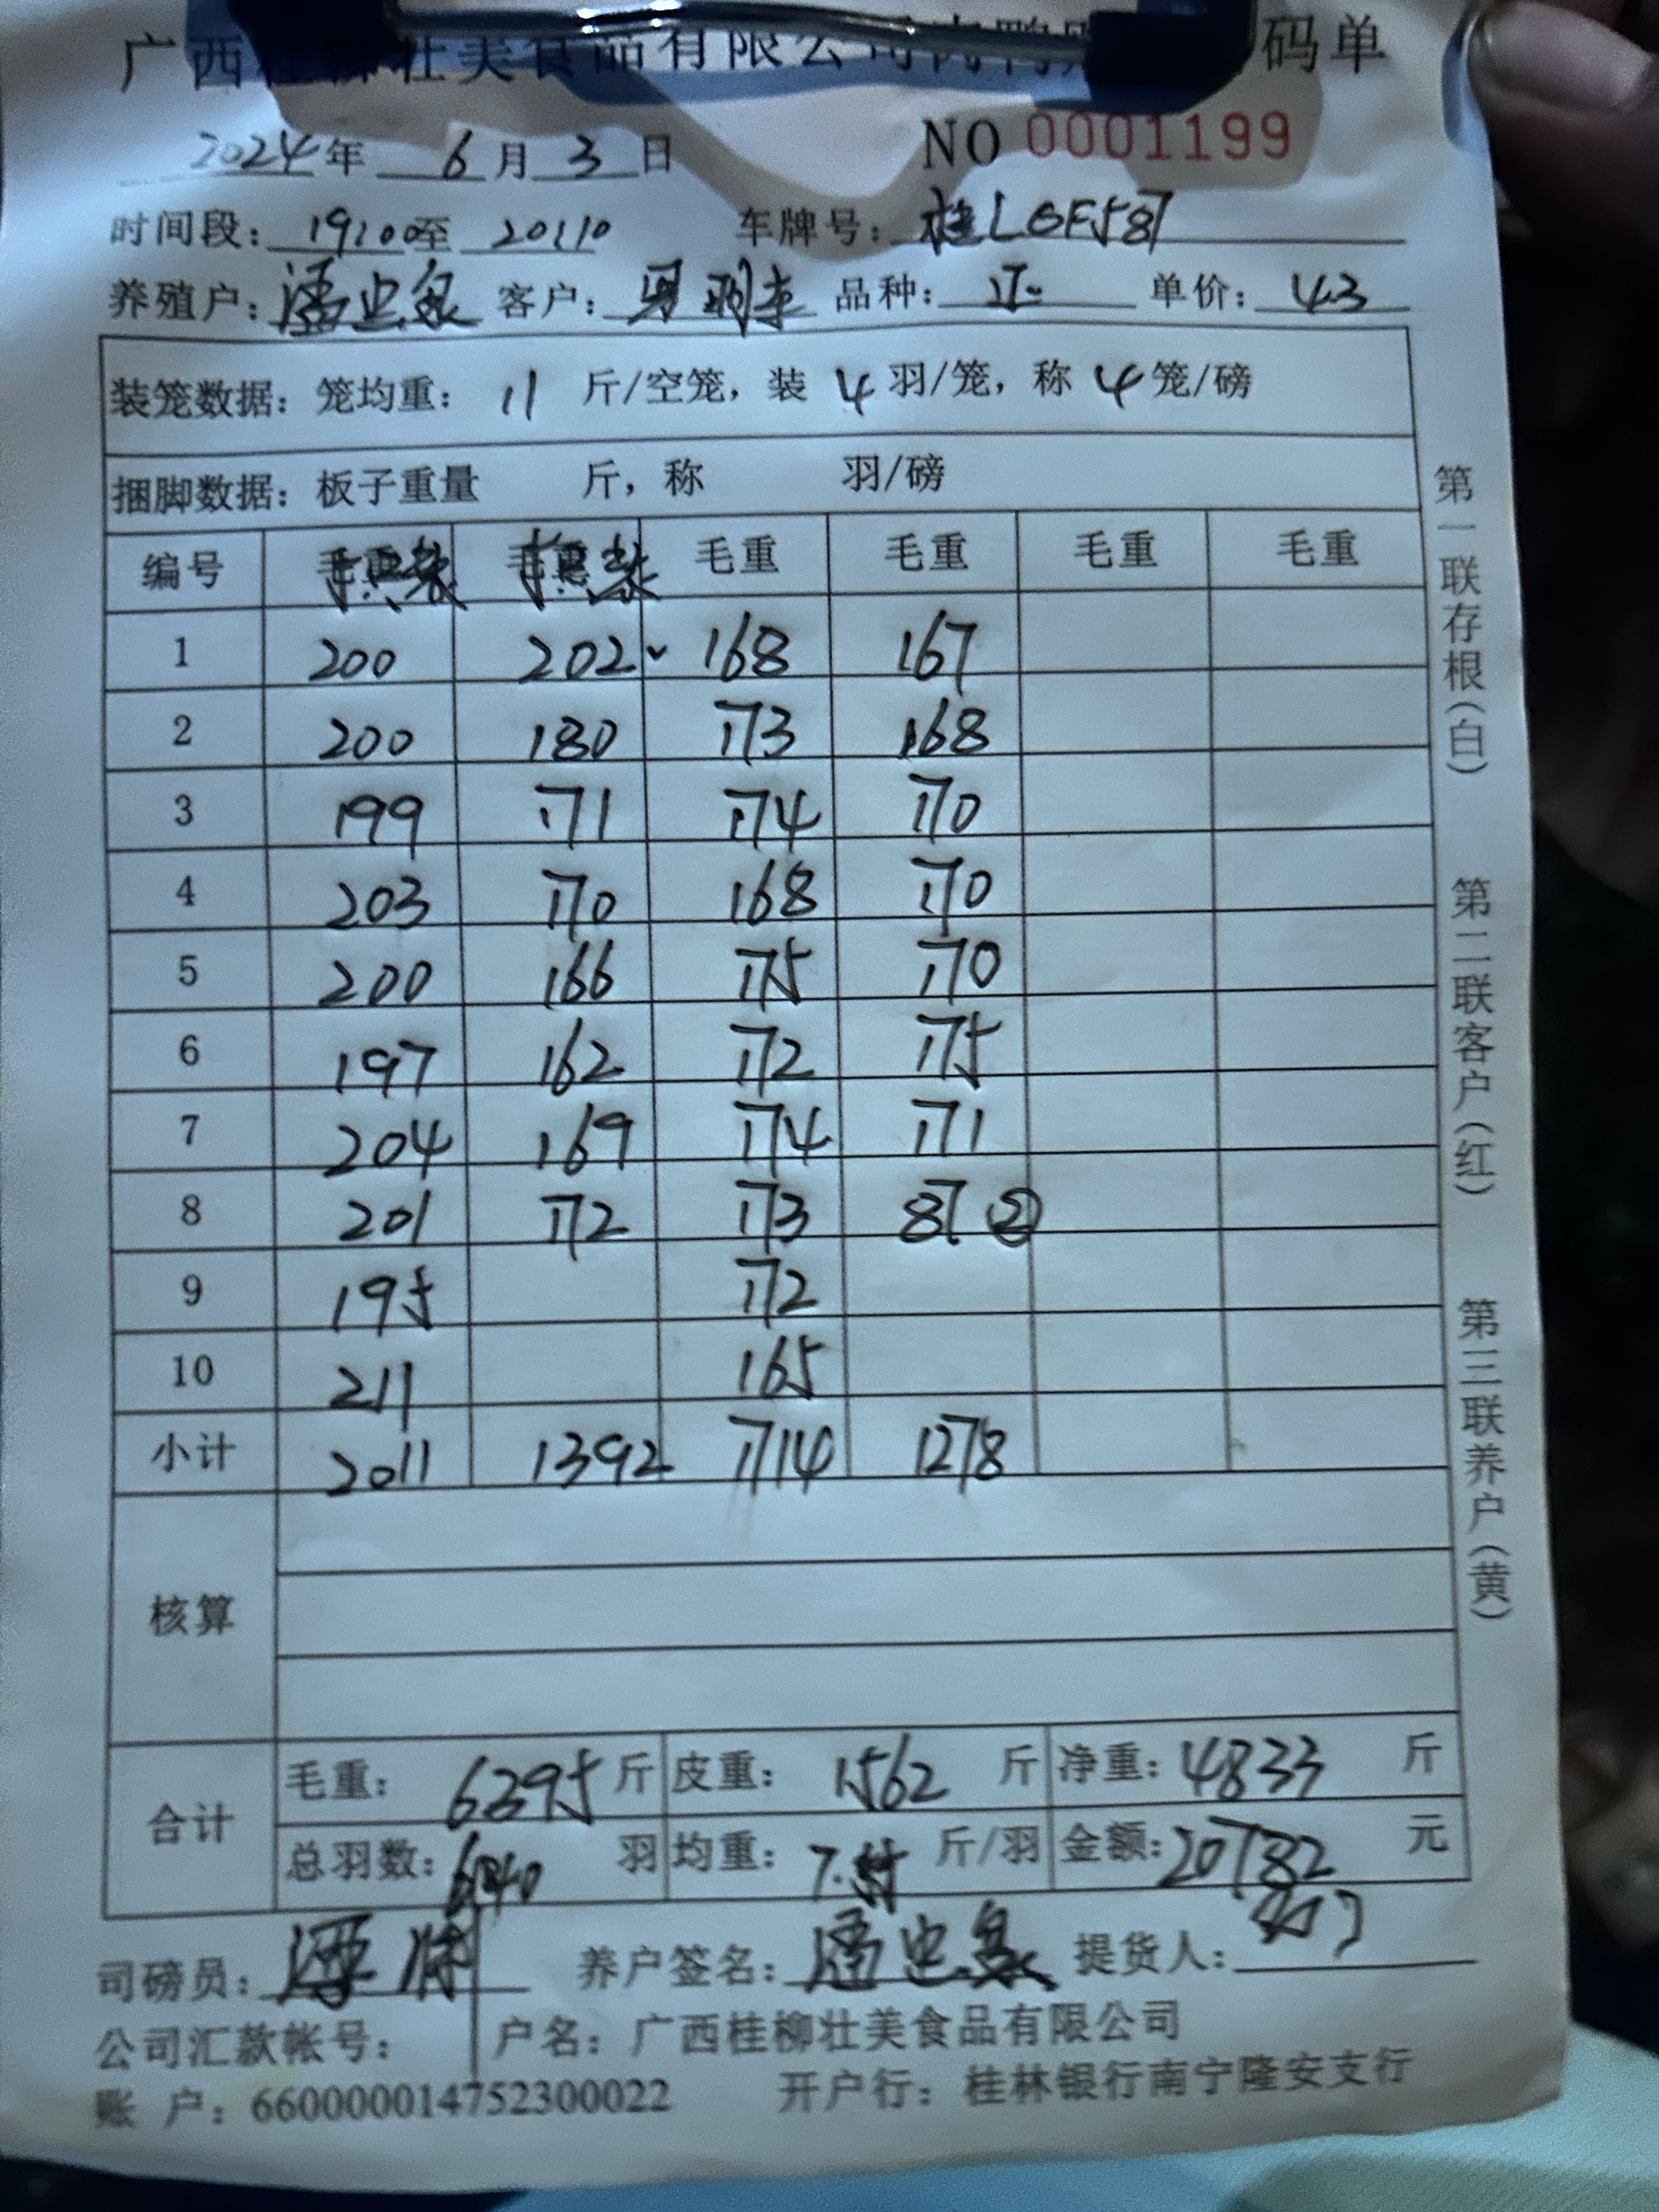 广西桂柳壮美食品有限公司肉鸭 码单
2024年 6月3日 NO 0001199
时间段：19:00至 20:10 车牌号：桂LGF587
养殖户：潘忠 客户： 品种： 单价：4.3
装笼数据：笼均重：11 斤/空笼，装 4 羽/笼，称 4 笼/磅
捆脚数据：板子重量 斤，称 羽/磅
编号 毛重 毛重 毛重 毛重 毛重 毛重
1 200 202 168 167
2 200 180 173 168
3 199 171 174 170
4 203 170 168 170
5 200 166 175 170
6 197 162 172 175
7 204 169 174 171
8 201 172 173 87 ②
9 195 172
10 211 165
小计 2011 1392 1714 1278
核算
合计 毛重：6395斤 皮重：1562 斤 净重：4833 斤
总羽数：640 羽 均重：7.55 斤/羽 金额：20782 元
司磅员： 养户签名：潘忠 提货人：
公司汇款帐号： 户名：广西桂柳壮美食品有限公司
账 户：660000014752300022 开户行：桂林银行南宁隆安支行
第一联存根（白） 第二联客户（红） 第三联养户（黄）